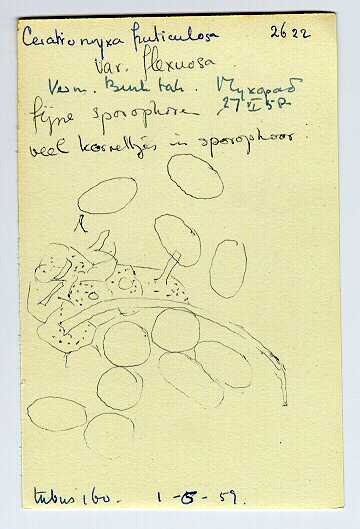 Ceratiomyxa fruticulosa 2622
var. flexuosa.
Verm. Buah tah. Myxopad
27 VI 58
fijne sporophoren
veel korreltjes in sporophoor.
tubus 160. 1-5-59.